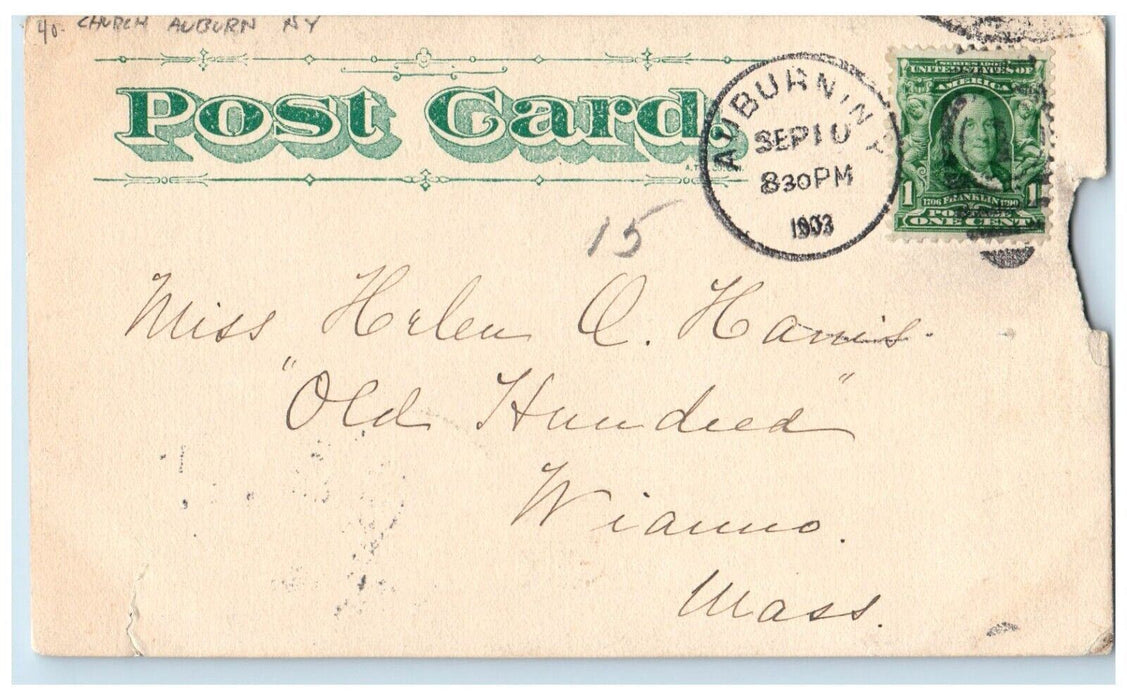 40- CHURCH AUBURN NY
Post Card
AUBURN, N.Y.
SEP 10
830PM
1903
SERIES 1902
UNITED STATES OF
AMERICA
1 1706 FRANKLIN 1790 1
POSTAGE
ONE CENT
15
Miss Helen O. Harris.
"Old Hundred"
Wianno.
Mass.